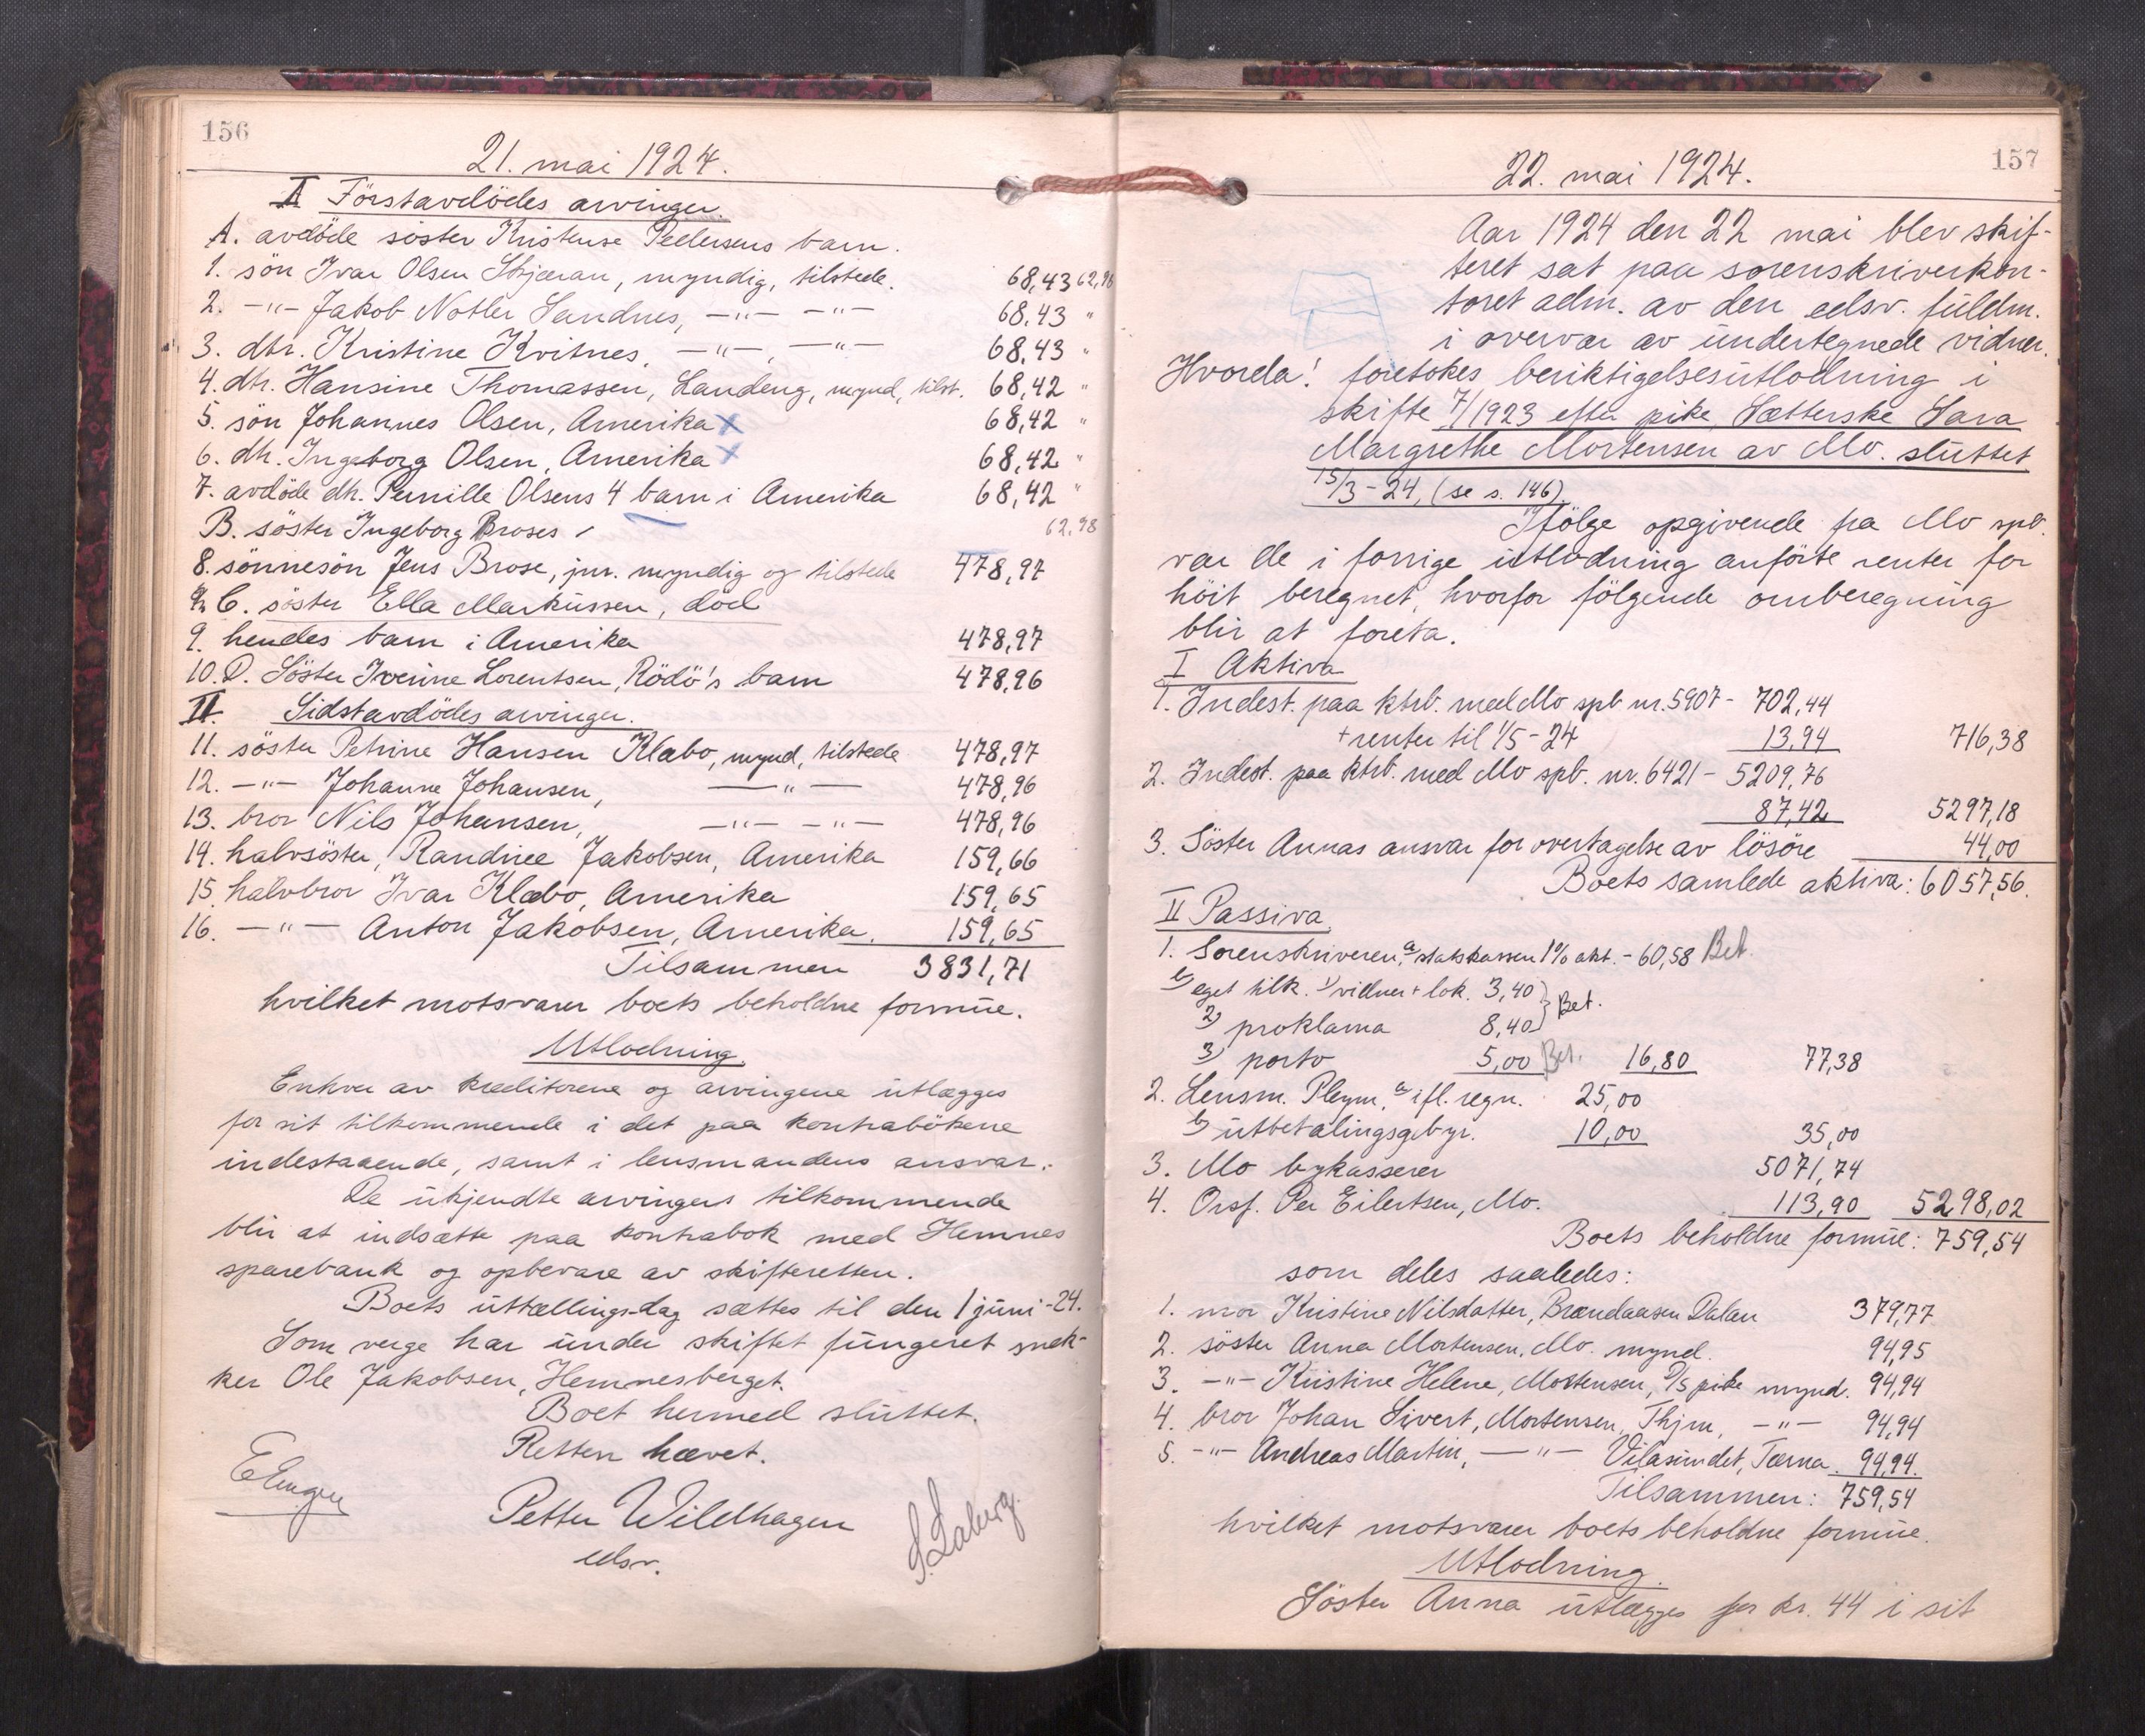 156
21. mai 1924.
I Förstavdödes arvinger.
A. avdöde söster Kristense Pedersens barn.
1. sön Ivar Olsen Skjæran, myndig, tilstede. 68,43 62,98
2. -"- Jakob Notler Sandnes, -"- -"- 68,43 "
3. dtr. Kristine Kvitnes, -"-, -"- 68,43 "
4. dtr. Hansine Thomassen, Landeng, mynd, tilst. 68,42 "
5. sön Johannes Olsen, Amerika x 68,42 "
6. dtr. Ingeborg Olsen, Amerika x 68,42 "
7. avdöde dtr. Pernille Olsens 4 barn i Amerika 68,42 "
B. söster Ingeborg Broses 62,98
8. sönnesön Jens Brose, jnr. myndig og tilstede 478,97
C. söster Ella Markussen, död
9. hendes barn i Amerika 478,97
10. D. Söster Iverine Lorentsen, Rödö's barn 478,96
II Sidstavdödes arvinger.
11. söster Petrine Hansen Klæbo, mynd, tilstede 478,97
12. -"- Johanne Johansen, -"- 478,96
13. bror Nils Johansen, -"- -"- 478,96
14. halvsöster, Randine Jakobsen, Amerika 159,66
15. halvbror Ivar Klæbo, Amerika 159,65
16. -"- Anton Jakobsen, Amerika. 159,65
Tilsammen 3831,71
hvilket motsvarer boets beholdne formue.
Utlodning.
Enhver av kreditorene og arvingene utlægges
for sit tilkommende i det paa kontrabökene
indestaaende, samt i lensmandens ansvar.
De ukjendte arvingers tilkommende
blir at indsætte paa kontrabok med Hemnes
sparebank og opbevare av skifteretten.
Boets uttællingsdag sættes til den 1 juni -24.
Som verge har under skiftet fungeret snek-
ker Ole Jakobsen, Hemnesberget.
Boet hermed sluttet.
Retten hævet.
E Enger
Petter Wildhagen
edsv.
157
22. mai 1924.
Aar 1924 den 22 mai blev skif-
teret sat paa sorenskriverkon-
toret adm. av den edsv. fuldm.
i overvær av undertegnede vidner.
Hvorda! foretokes beriktigelsesutlodning i
skifte 7/1923 efter pike Sætterske Sara
Margrethe Mortensen av Mo. sluttet
15/3 - 24, (se s. 146)
Ifölge opgivende fra Mo spb.
var de i forrige utlodning anförte renter for
höit beregnet, hvorfor fölgende omberegning
blir at foreta.
I Aktiva
1. Indest. paa ktrb. med Mo spb nr. 5907 - 702,44
+ renter til 1/5 - 24 13,94 716,38
2. Indest. paa ktrb. med Mo spb. nr. 6421 - 5209,76
87,42 5297,18
3. Söster Annas ansvar for overtagelse av lösöre 44,00
Boets samlede aktiva: 6057,56.
II Passiva.
1. Sorenskriveren, a) statskassen 1% akt. - 60,58 Bet.
b) eget tilk. 1) vidner + lok. 3,40 } Bet.
2) proklama 8,40
3) porto 5,00 Bet. 16,80 77,38
2. Lensm. Pleym, a) ifl. regn. 25,00
b) utbetalingsgebyr. 10,00 35,00
3. Mo bykasserer 5071,74
4. Orsf. Per Eilertsen, Mo. 113,90 5298,02
Boets beholdne formue: 759,54
som deles saaledes:
1. mor Kristine Nilsdatter, Brændaasen Dalan 379,77
2. söster Anna Mortensen, Mo. mynd. 94,95
3. -"- Kristine Helene, Mortensen, D/S pike mynd. 94,94
4. bror Johan Sivert, Mortensen, Thjm, -"- 94,94
5. -"- Andreas Martin, -"- Vilasundet, Tærna. 94,94.
Tilsammen: 759,54
hvilket motsvarer boets beholdne formue.
Utlodning.
Söster Anna utlægges for kr. 44 i sit